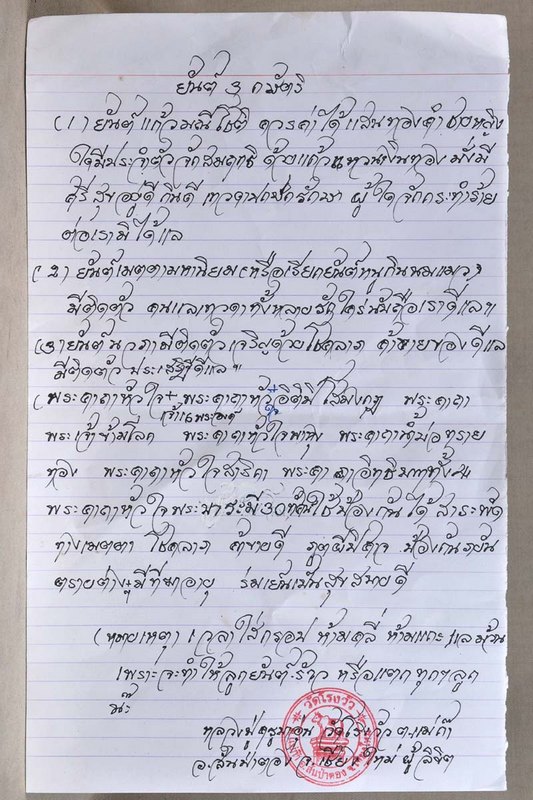 ยันต์ 3 กษัตริ
(1) ยันต์แก้วมณีโชติ ควรค่าได้แสนทองคำ ชายหญิง
ใดมีประจำตัวจักสมฤทธิ ด้วยแก้วแหวนเงินทอง มั่งมี
ศรีสุขอยู่ดีกินดี เทวดาปกปักรักษา ผู้ใดจักกระทำร้าย
ต่อเรามิได้แล
(2) ยันต์เมตตามหานิยม (หรือเรียกยันต์หนูกินนมแมว)
มีติดตัว คนแลเทวดาทั้งหลายรักใคร่นับถือเราดีแลฯ
(3) ยันต์นวภามีติดตัวเจริญด้วยโชคลาภ ค้าขายของดีแล
มีติดตัวประเสริฐดีแลฯ
(พระคาถาหัวใจ + พระคาถาหัวอิติปิโสมงกุฎ พระคาถา
เจ้า16พระองค์
พระเจ้าข้ามโลก พระคาถาหัวใจพาหุง พระคาถาน้ำบ่อทราย
ทอง พระคาถาหัวใจสาริกา พระคาถาอิทธิฤทธิ์ทั้ง4
พระคาถาหัวใจพระบารมี30ทัศ ใช้ป้องกันได้สาระพัด
ทางเมตตา โชคลาภ ค้าขายดี ภูตผีปีศาจ ป้องกันภยัน
ตรายต่างๆ มีที่พอายุ ร่มเย็นเป็นสุขสบายดี
(หมายเหตุ) เวลาใส่กรอบ ห้ามคลี่ ห้ามแกะ แลม้วน
เพราะจะทำให้ลูกยันต์ร้าว หรือแตกทุกๆลูก
น๊ะ
หลวงปู่ครูบาอุ่น วัดโรงวัว ต.แม่ก๊า
อ.สันป่าตอง จ.เชียงใหม่ ผู้ลิขิต
วัดโรงวัว